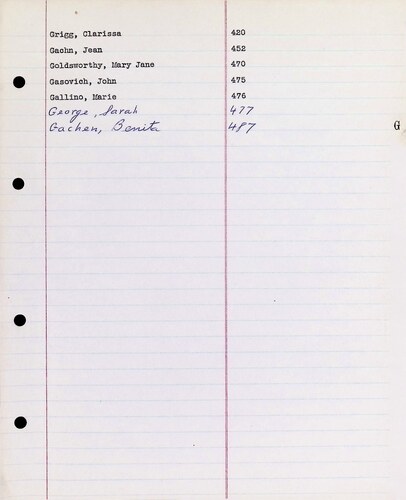 Grigg, Clarissa 420
Gachn, Jean 452
Goldsworthy, Mary Jane 470
Gasovich, John 475
Gallino, Marie 476
George, Sarah 477
Gachen, Benita 487
G